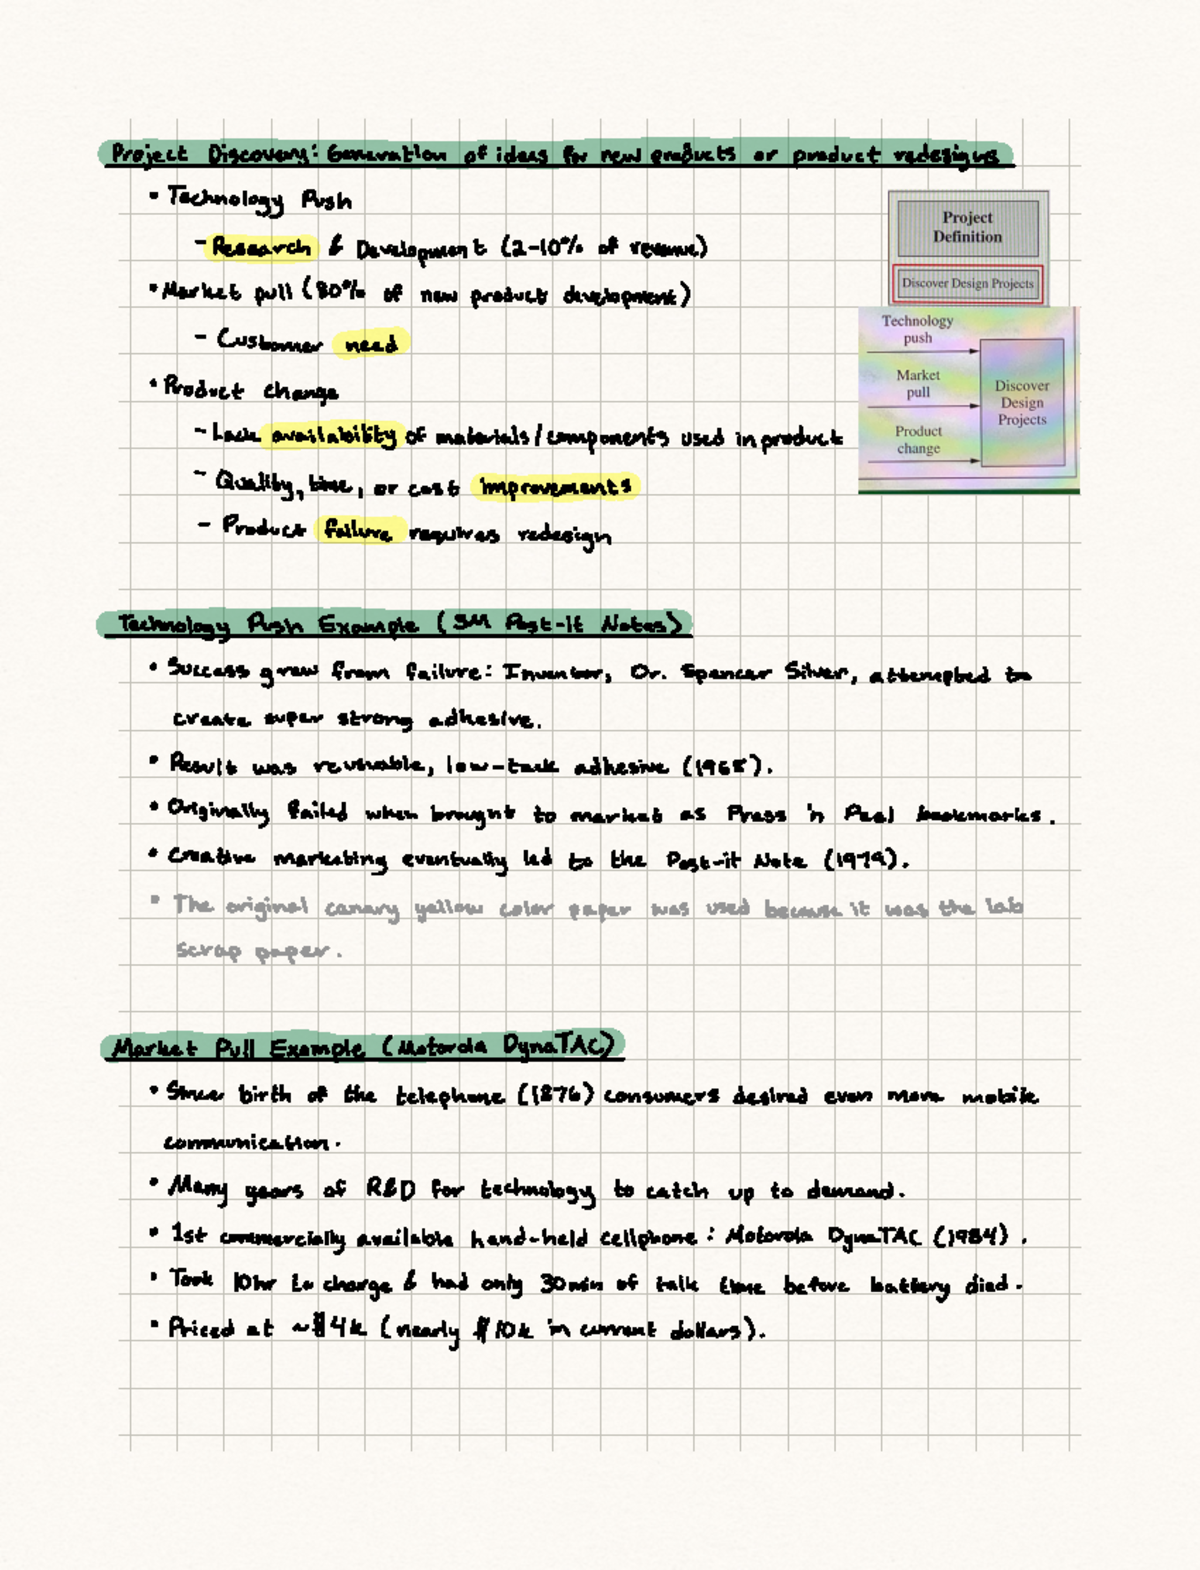 Project Discovery: Generation of ideas for new products or product redesigns
• Technology Push
- Research & Development (2-10% of revenue)
• Market pull (80% of new product development)
- Customer need
• Product change
- Lack availability of materials/components used in product
- Quality, time, or cost improvements
- Product failure requires redesign
Project
Definition
Discover Design Projects
Technology
push
Market
pull
Product
change
Discover
Design
Projects
Technology Push Example (3M Post-it Notes)
• Success grew from failure: Inventor, Dr. Spencer Silver, attempted to
create super strong adhesive.
• Result was reusable, low-tack adhesive (1968).
• Originally failed when brought to market as Press 'n Peel bookmarks.
• Creative marketing eventually led to the Post-it Note (1979).
• The original canary yellow color paper was used because it was the lab
scrap paper.
Market Pull Example (Motorola DynaTAC)
• Since birth of the telephone (1876) consumers desired even more mobile
communication.
• Many years of R&D for technology to catch up to demand.
• 1st commercially available hand-held cellphone: Motorola DynaTAC (1984).
• Took 10hr to charge & had only 30min of talk time before battery died.
• Priced at ~$4k (nearly $10k in current dollars).